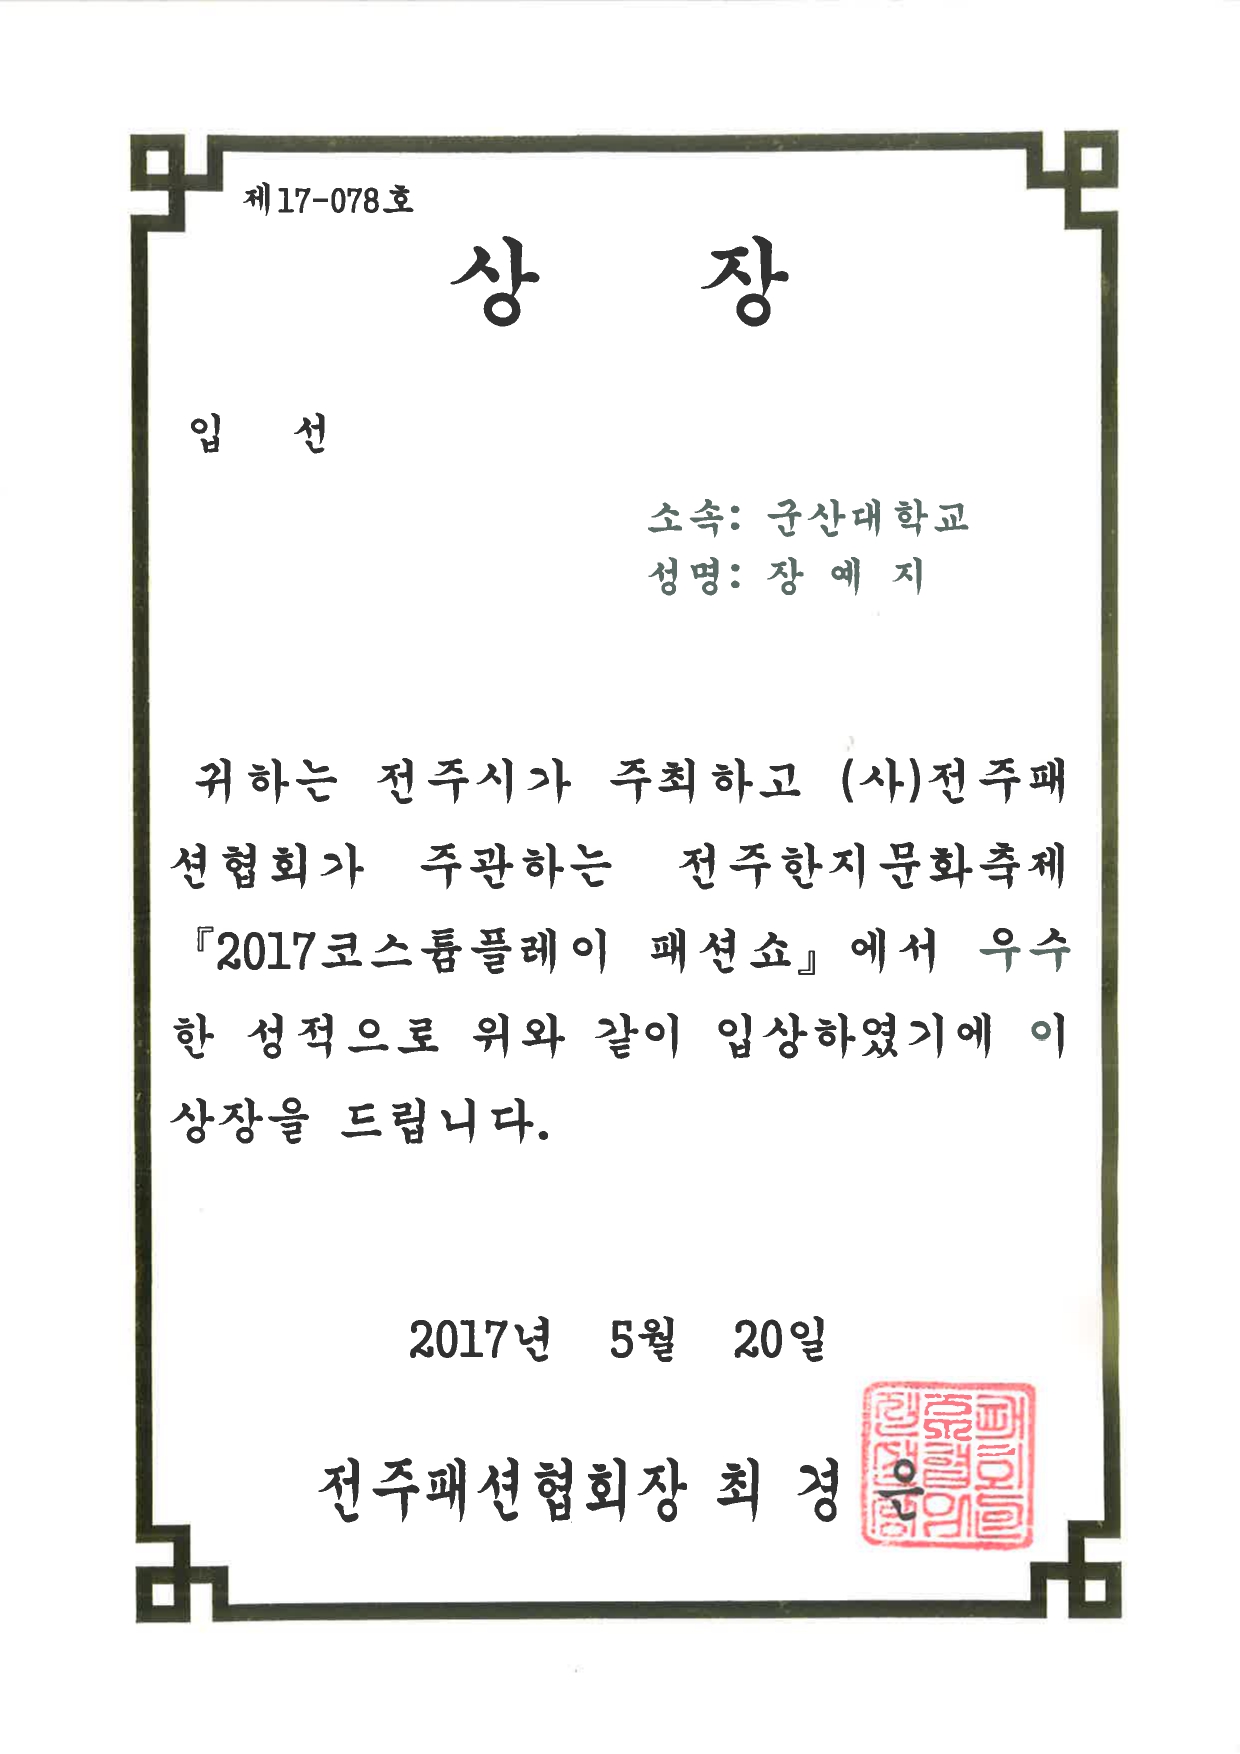 제17-078호
상 장
입 선
소속: 군산대학교
성명: 장 예 지
귀하는 전주시가 주최하고 (사)전주패
션협회가 주관하는 전주한지문화축제
『2017코스튬플레이 패션쇼』에서 우수
한 성적으로 위와 같이 입상하였기에 이
상장을 드립니다.
2017년 5월 20일
전주패션협회장 최 경 은